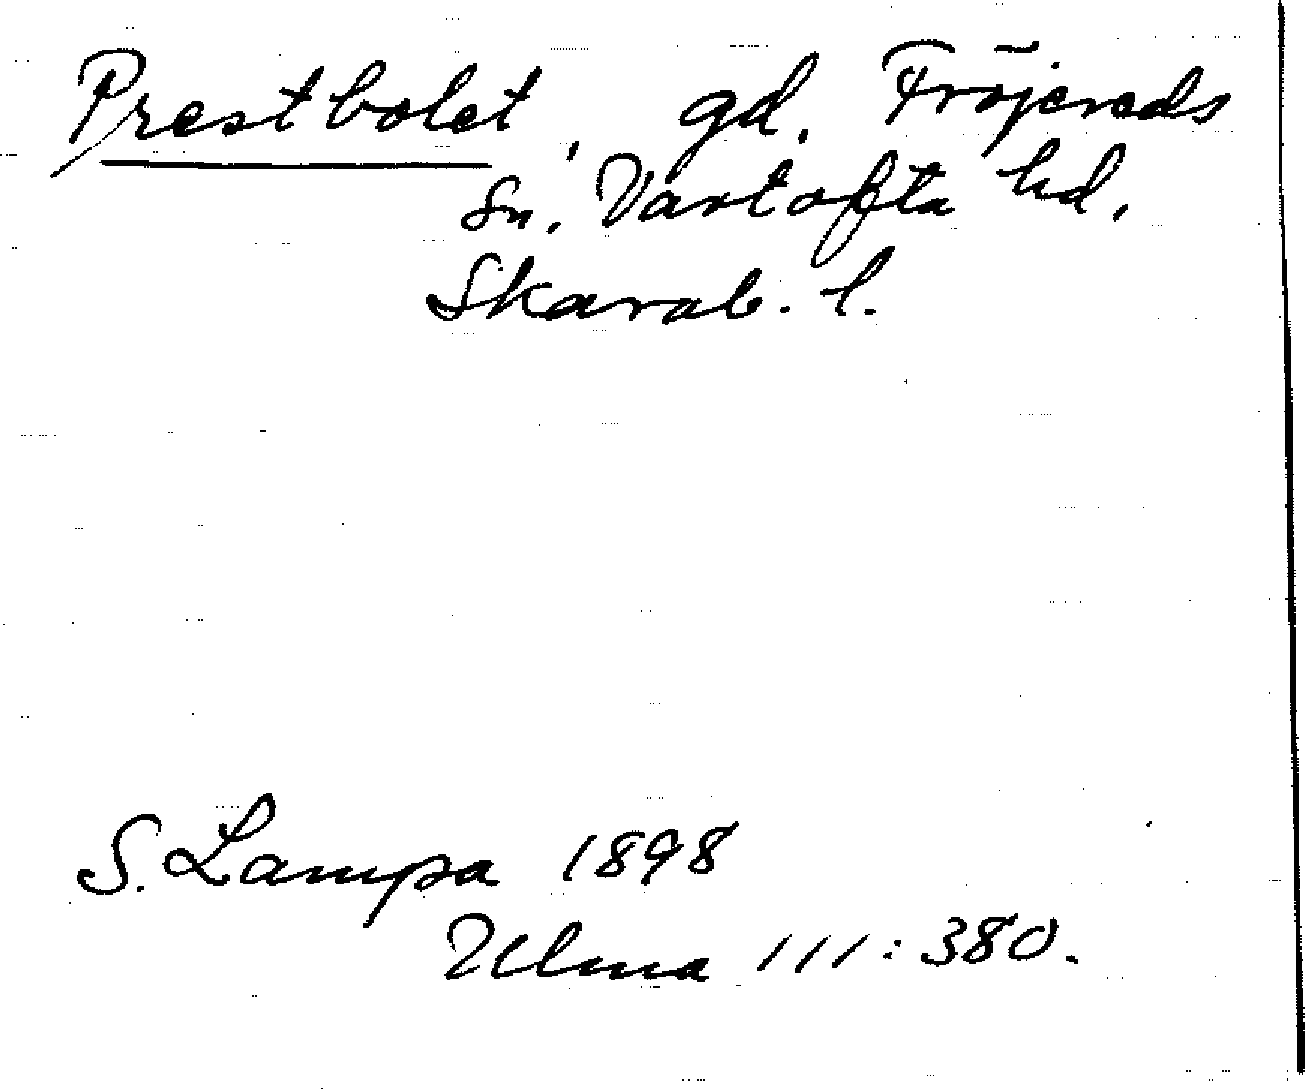 Prestbolet, gd. Fröjereds
Sn. Vartofta hd,
Skarab. l.
S. Lampa 1898
Ulma 111:380.